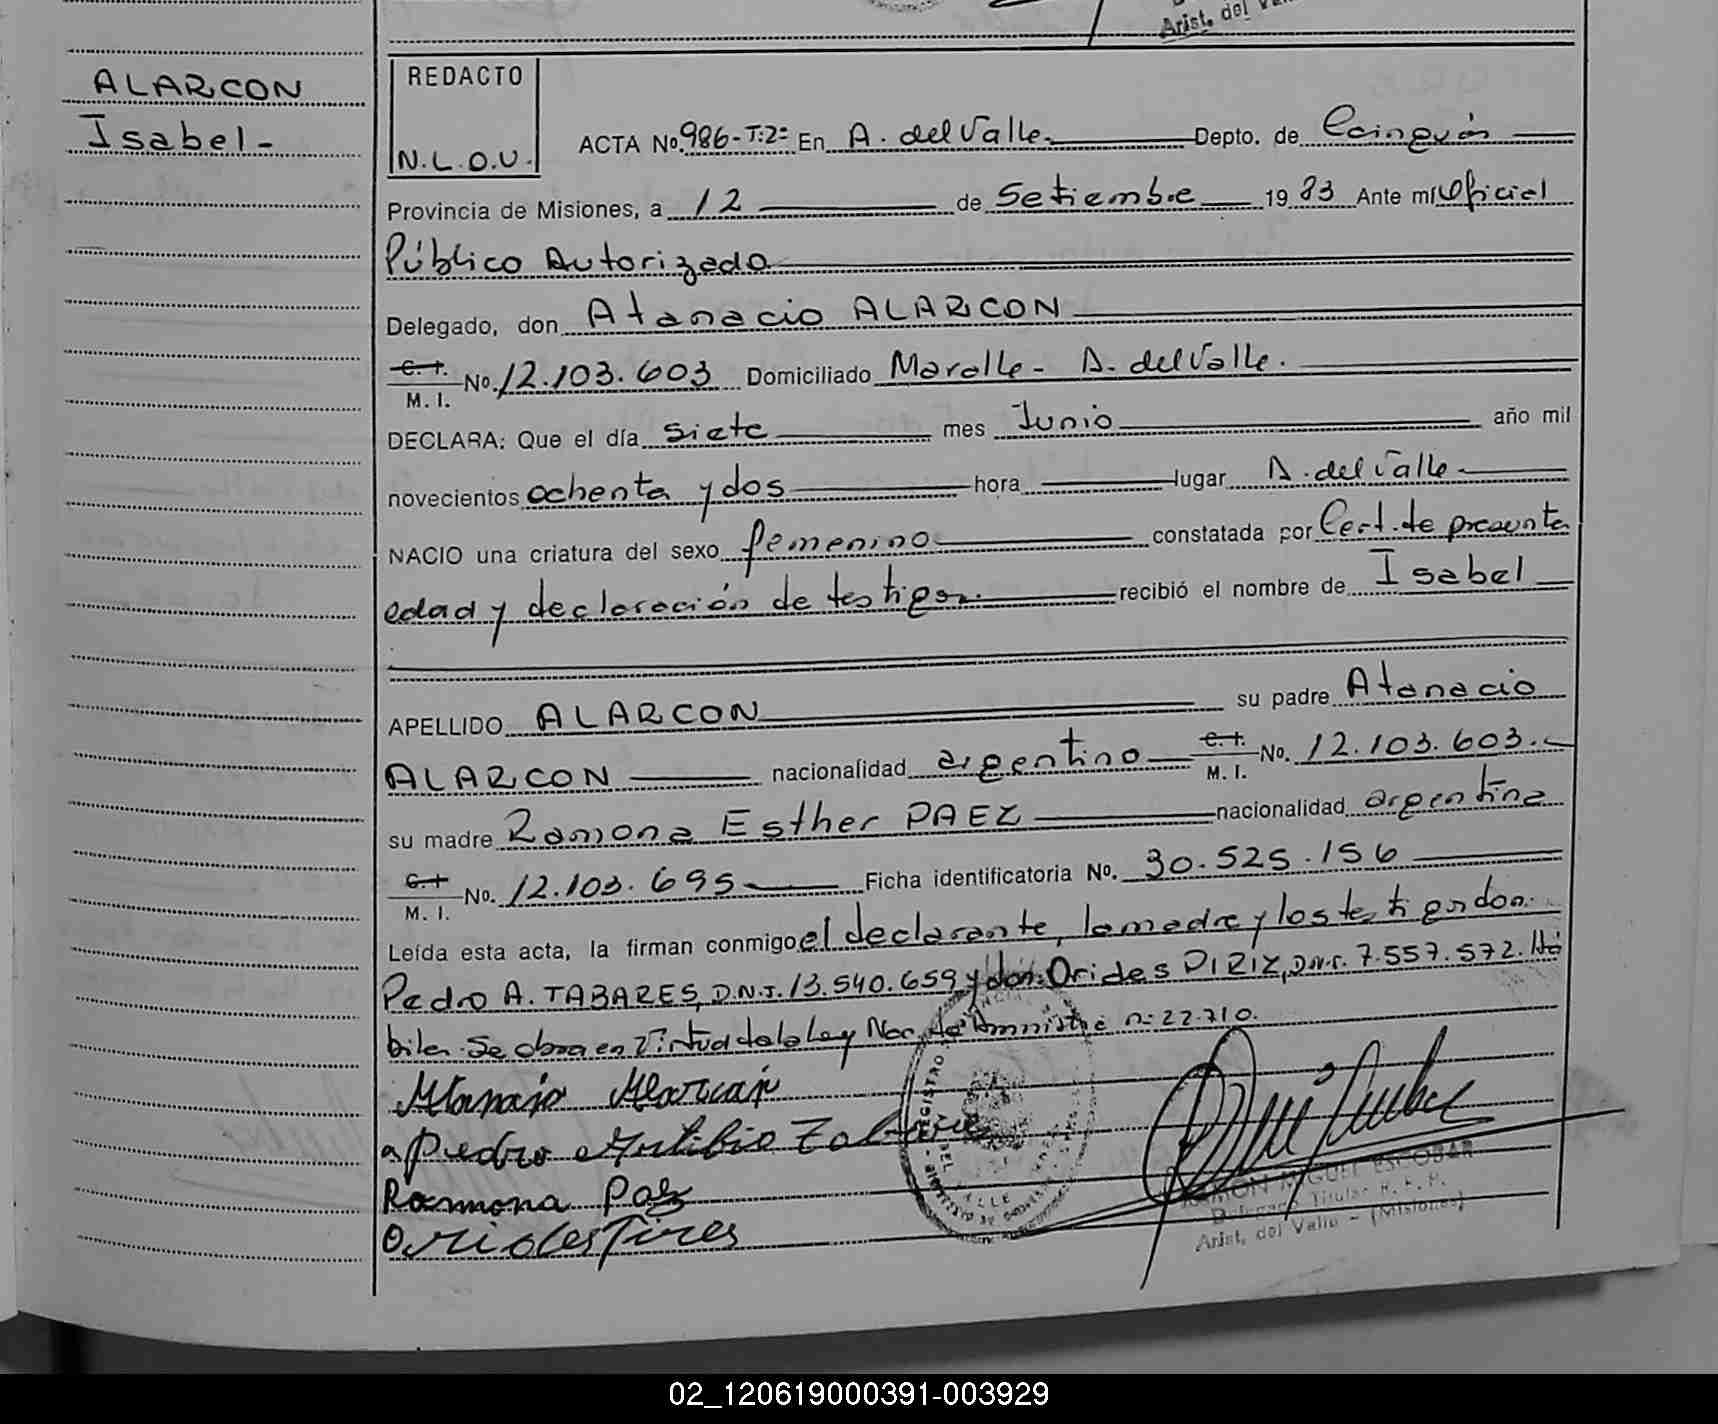 Arist. del Va
ALARCON
Isabel-
REDACTO
N.L.O.U.
ACTA No. 986-T:2º En A. del Valle. Depto. de Cainguás
Provincia de Misiones, a 12 de Setiembre 1983 Ante mí Oficial
Público Autorizado
Delegado, don Atanacio ALARCON
C. I.
M. I. No. 12.103.603 Domiciliado Maralle- A. del Valle.
DECLARA: Que el día siete mes Junio año mil
novecientos ochenta y dos hora lugar A. del Valle-
NACIO una criatura del sexo femenino constatada por Cert. de presunta
edad y declaración de testigos. recibió el nombre de Isabel
APELLIDO ALARCON su padre Atanacio
ALARCON nacionalidad argentino C. I. M. I. No. 12.103.603.-
su madre Ramona Esther PAEZ nacionalidad argentina
C. I. M. I. No. 12.103.695 Ficha identificatoria No. 30.525.156
Leída esta acta, la firman conmigo el declarante, la madre y los testigos don.
Pedro A. TABARES, D.N.I. 13.540.659 y don: Orides PIRIZ, D.N.I. 7.557.572. Há
biles. Se obra en Virtud de la Ley Nac. de Amnistía nº 22.710.
Atanacio Alarcon
Pedro Tabares
Ramona Paez
Orides Pires
REGISTRO
DEL VALLE
RAMON MIGUEL ESCOBAR
Delegado Titular R. P. P.
Arist. del Valle - (Misiones)
02_120619000391-003929